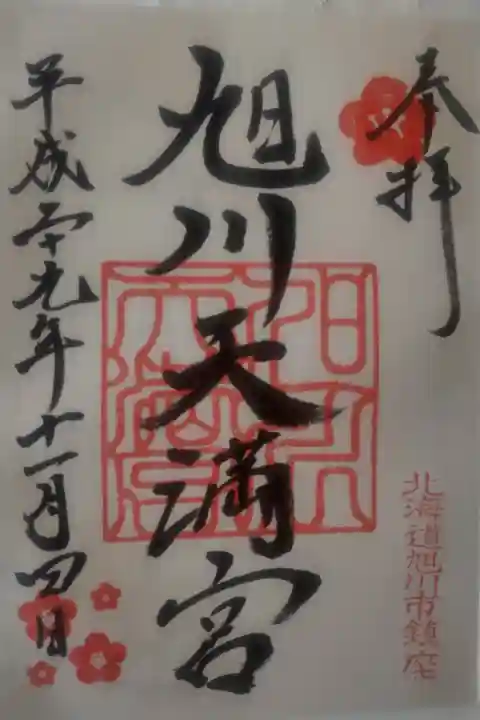 奉拝
北海道旭川市鎮座
旭川天満宮
旭川天満宮
平成二十九年十一月四日